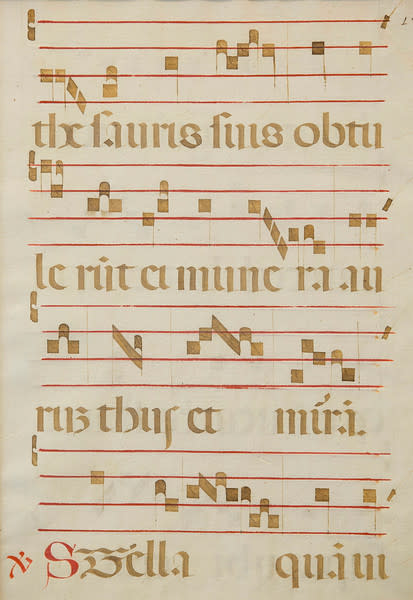 thesauris suis obtu
lerūt et mune ra au
rūz thus et mirrā.
℣ Stella quā ui